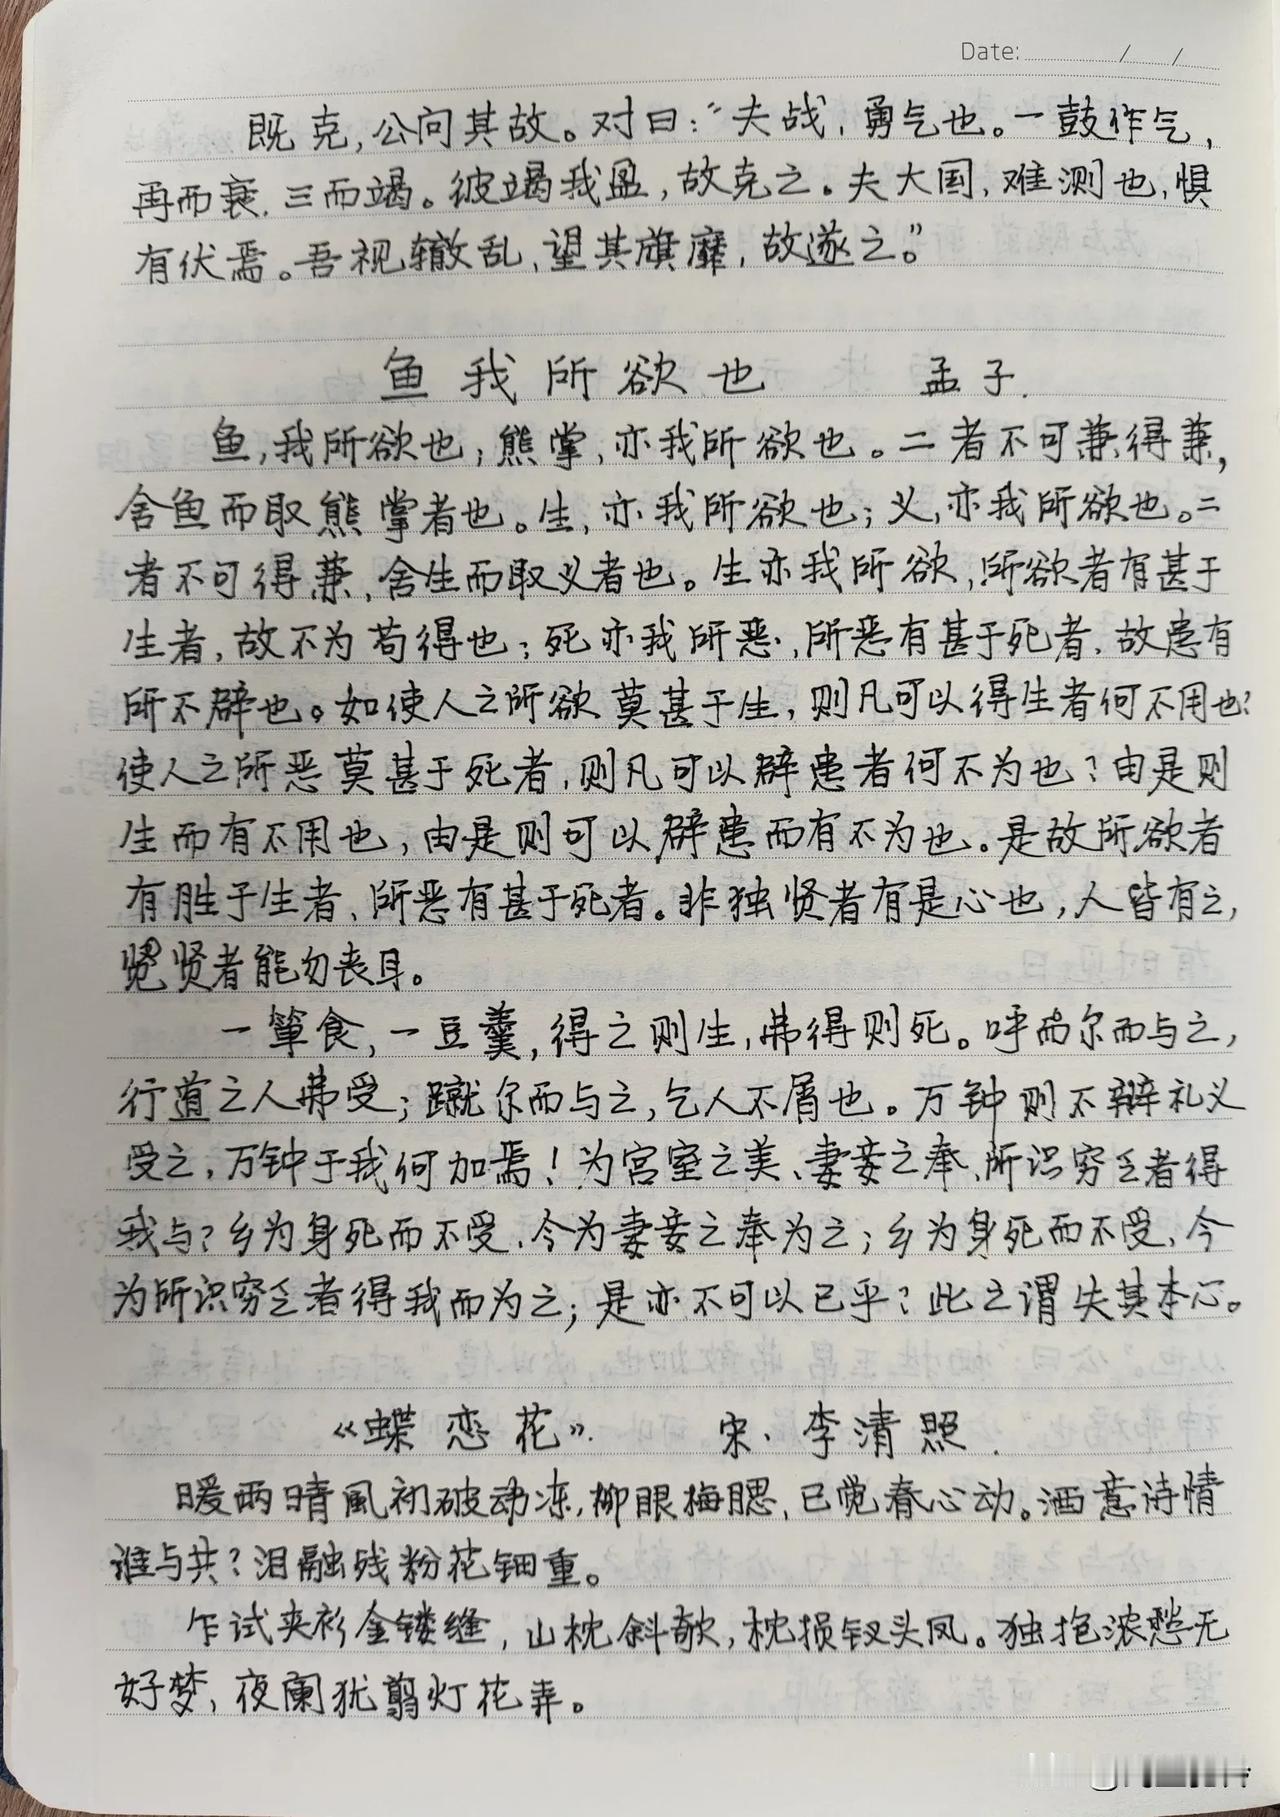 Date: / /
既克，公问其故。对曰：“夫战，勇气也。一鼓作气，
再而衰，三而竭。彼竭我盈，故克之。夫大国，难测也，惧
有伏焉。吾视辙乱，望其旗靡，故逐之。”
鱼我所欲也 孟子.
鱼，我所欲也；熊掌，亦我所欲也。二者不可兼得兼，
舍鱼而取熊掌者也。生，亦我所欲也；义，亦我所欲也。二
者不可得兼，舍生而取义者也。生亦我所欲，所欲者有甚于
生者，故不为苟得也；死亦我所恶，所恶有甚于死者，故患有
所不辟也。如使人之所欲莫甚于生，则凡可以得生者何不用也？
使人之所恶莫甚于死者，则凡可以辟患者何不为也？由是则
生而有不用也，由是则可以辟患而有不为也。是故所欲者
有胜于生者、所恶有甚于死者。非独贤者有是心也，人皆有之，
贤者能勿丧耳。
一箪食，一豆羹，得之则生，弗得则死。呼尔而与之，
行道之人弗受；蹴尔而与之，乞人不屑也。万钟则不辩礼义
受之，万钟于我何加焉！为宫室之美、妻妾之奉、所识穷乏者得
我与？乡为身死而不受，今为妻妾之奉为之；乡为身死而不受，今
为所识穷乏者得我而为之；是亦不可以已乎？此之谓失其本心。
《蝶恋花》. 宋、李清照.
暖雨晴風初破动冻，柳眼梅腮，已觉春心动。洒意诗情
谁与共？泪融残粉花钿重。
乍试夹衫金镂缝，山枕斜欹，枕损钗头凤。独抱浓愁无
好梦，夜阑犹剪灯花弄。